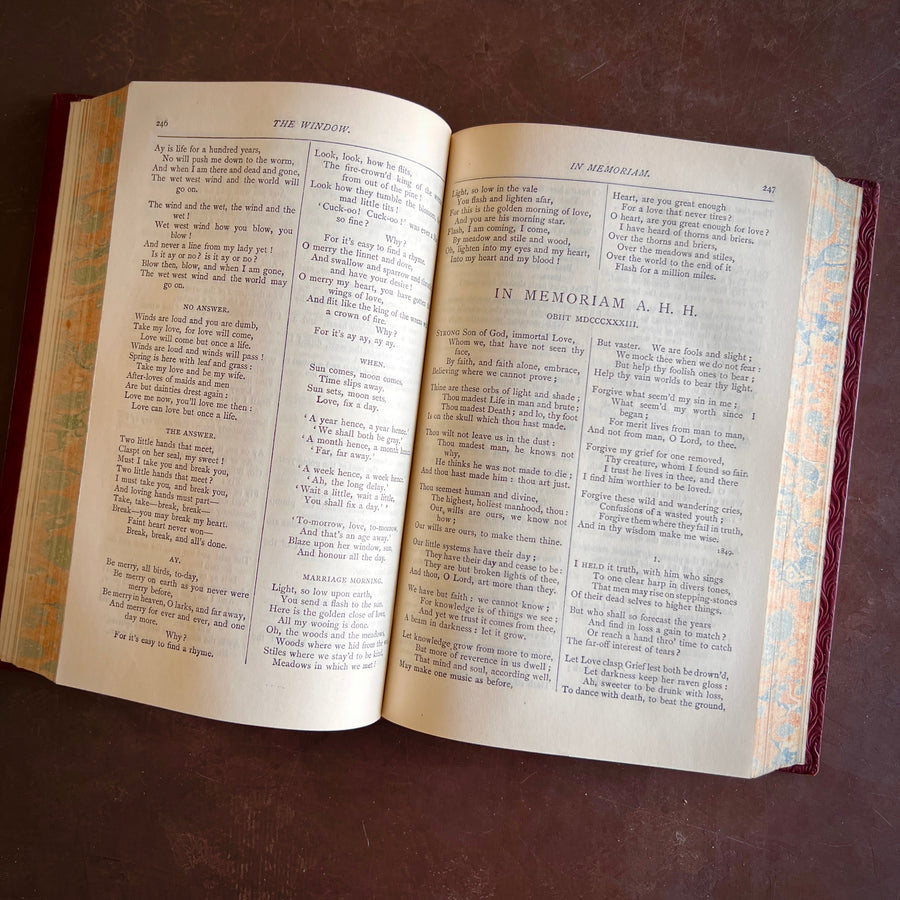 246
THE WINDOW.
Ay is life for a hundred years,
No will push me down to the worm,
And when I am there and dead and gone,
The wet west wind and the world will
go on.
The wind and the wet, the wind and the
wet !
Wet west wind how you blow, you
blow !
And never a line from my lady yet !
Is it ay or no ? is it ay or no ?
Blow then, blow, and when I am gone,
The wet west wind and the world may
go on.
NO ANSWER.
Winds are loud and you are dumb,
Take my love, for love will come,
Love will come but once a life.
Winds are loud and winds will pass !
Spring is here with leaf and grass :
Take my love and be my wife.
After-loves of maids and men
Are but dainties drest again :
Love me now, you'll love me then :
Love can love but once a life.
THE ANSWER.
Two little hands that meet,
Claspt on her seal, my sweet !
Must I take you and break you,
Two little hands that meet ?
I must take you, and break you,
And loving hands must part—
Take, take—break, break—
Break—you may break my heart.
Faint heart never won—
Break, break, and all's done.
AY.
Be merry, all birds, to-day,
Be merry on earth as you never were
merry before,
Be merry in heaven, O larks, and far away,
And merry for ever and ever, and one
day more.
Why ?
For it's easy to find a rhyme.
Look, look, how he flits,
The fire-crown'd king of the
from out of the pine !
Look how they tumble the
mad little tits !
' Cuck-oo ! Cuck-oo ! ' was ever a
so fine ?
Why ?
For it's easy to find a rhyme.
O merry the linnet and dove,
And swallow and sparrow and
and have your desire !
O merry my heart, you have gotten
wings of love,
And flit like the king of the
a crown of fire.
Why ?
For it's ay ay, ay ay.
WHEN.
Sun comes, moon comes,
Time slips away.
Sun sets, moon sets,
Love, fix a day.
' A year hence, a year hence.'
' We shall both be gray.'
' A month hence, a month hence.'
' Far, far away.'
' A week hence, a week hence.'
' Ah, the long delay.'
' Wait a little, wait a little,
You shall fix a day.'
' To-morrow, love, to-morrow,
And that's an age away.'
Blaze upon her window, sun,
And honour all the day.
MARRIAGE MORNING.
Light, so low upon earth,
You send a flash to the sun.
Here is the golden close of love,
All my wooing is done.
Oh, the woods and the meadows,
Woods where we hid from the
Stiles where we stay'd to be kind,
Meadows in which we met !
IN MEMORIAM.
247
Light, so low in the vale
You flash and lighten afar,
For this is the golden morning of love,
And you are his morning star.
Flash, I am coming, I come,
By meadow and stile and wood,
Oh, lighten into my eyes and my heart,
Into my heart and my blood !
Heart, are you great enough
For a love that never tires ?
O heart, are you great enough for love ?
I have heard of thorns and briers.
Over the thorns and briers,
Over the meadows and stiles,
Over the world to the end of it
Flash for a million miles.
IN MEMORIAM A. H. H.
OBIIT MDCCCXXXIII.
STRONG Son of God, immortal Love,
Whom we, that have not seen thy
face,
By faith, and faith alone, embrace,
Believing where we cannot prove ;
Thine are these orbs of light and shade ;
Thou madest Life in man and brute ;
Thou madest Death ; and lo, thy foot
Is on the skull which thou hast made.
Thou wilt not leave us in the dust :
Thou madest man, he knows not
why,
He thinks he was not made to die ;
And thou hast made him : thou art just.
Thou seemest human and divine,
The highest, holiest manhood, thou :
Our wills are ours, we know not
how ;
Our wills are ours, to make them thine.
Our little systems have their day ;
They have their day and cease to be :
They are but broken lights of thee,
And thou, O Lord, art more than they.
We have but faith : we cannot know ;
For knowledge is of things we see ;
And yet we trust it comes from thee,
A beam in darkness : let it grow.
Let knowledge grow from more to more,
But more of reverence in us dwell ;
That mind and soul, according well,
May make one music as before,
But vaster. We are fools and slight ;
We mock thee when we do not fear :
But help thy foolish ones to bear ;
Help thy vain worlds to bear thy light.
Forgive what seem'd my sin in me ;
What seem'd my worth since I
began ;
For merit lives from man to man,
And not from man, O Lord, to thee.
Forgive my grief for one removed,
Thy creature, whom I found so fair.
I trust he lives in thee, and there
I find him worthier to be loved.
Forgive these wild and wandering cries,
Confusions of a wasted youth ;
Forgive them where they fail in truth,
And in thy wisdom make me wise.
1849.
I.
I HELD it truth, with him who sings
To one clear harp in divers tones,
That men may rise on stepping-stones
Of their dead selves to higher things.
But who shall so forecast the years
And find in loss a gain to match ?
Or reach a hand thro' time to catch
The far-off interest of tears ?
Let Love clasp Grief lest both be drown'd,
Let darkness keep her raven gloss :
Ah, sweeter to be drunk with loss,
To dance with death, to beat the ground,